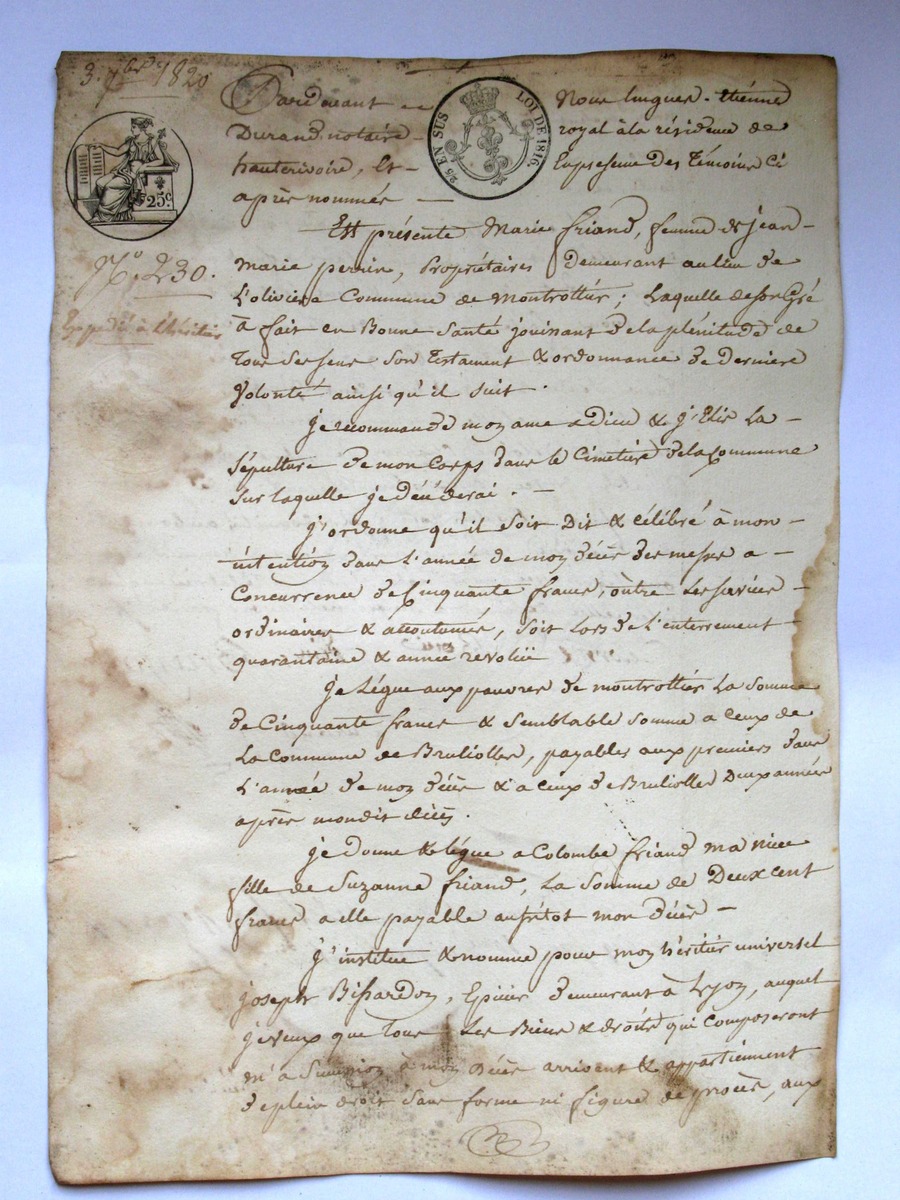 3. 7bre 1820
25 EN SUS
LOI DE 1816.
25c.
No. 230.
Expédié à l'héritier
Pardevant
Nous hugues-étienne
Durand notaire
royal à la résidence de
hauterivoire, Et
En présence Des témoins Ci
après nommés —
Est présente Marie friand, femme de jean-
Marie perrin, Propriétaires Demeurant au lieu de
L'oliviere Commune de Montrottier; Laquelle de son Gré
à fait en Bonne Santé jouissant de la plénitude de
tous Ses sens Son testament & ordonnance de Derniere
Volonté ainsi qu'il suit.
je recommande mon ame a Dieu & j'Elis La
Sépulture de mon Corps dans le Cimetière de la Commune
Sur laquelle je Décéderai. —
j'ordonne qu'il Soit Dit & célébré à mon
intention dans L'année de mon décès des messes a
Concurrence de Cinquante francs, outre Les services
ordinaires & accoutumés, soit Lors de L'enterrement
quarantaine & année revolüe
je Légue aux pauvres de montrottier La Somme
de Cinquante francs & Semblable Somme a Ceux de
La Commune de Brullioles, payables aux premiers dans
L'année de mon décès & a Ceux de Brullioles Deux années
après mondit décès.
je donne & légue a Colombe friand ma niece
fille de Suzanne friand, La Somme de Deux cent
francs a elle payable aussitot mon décès —
j'institue & nomme pour mon héritier universel
joseph Bissardon, Epicier Demeurant à Lyon, auquel
je veux que tous Les Biens & droits qui Composeront
ma Succession à mon Décès arrivent & appartiennent
de plein droit Sans forme ni figure de procès, aux